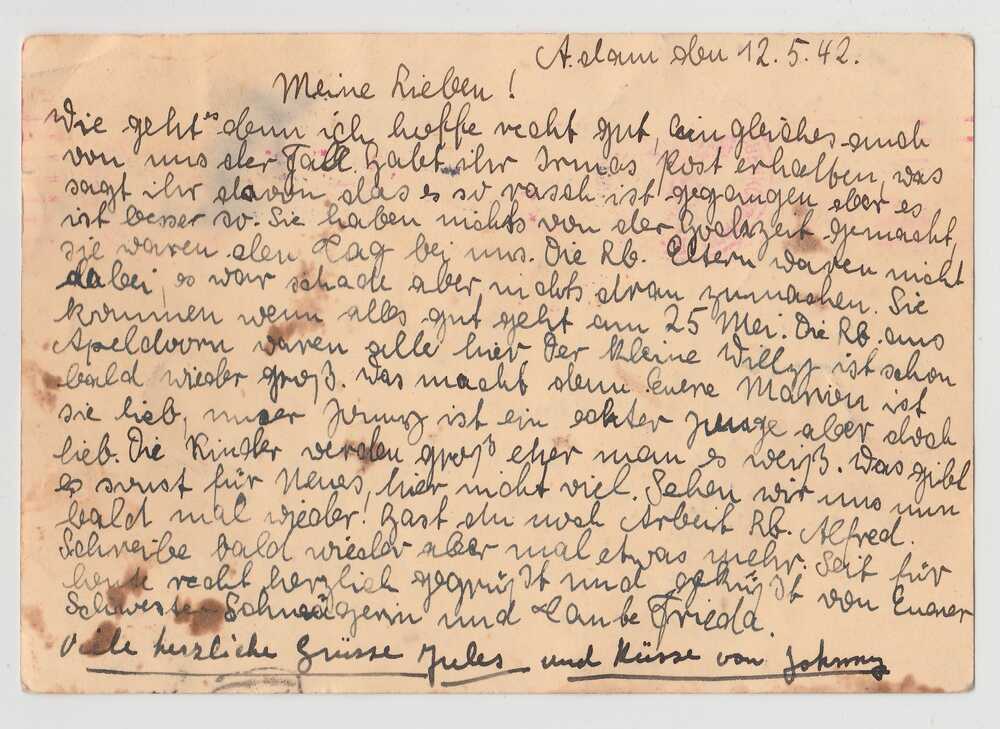 A.dam den 12.5.42.
Meine Lieben!
Wie geht es denn ich hoffe recht gut, ein gleiches auch
von uns der Fall. Habt ihr Irmas Post erhalten, was
sagt ihr davon das es so rasch ist gegangen aber es
ist besser so. Sie haben nichts von der Hochzeit gemacht,
sie waren den Tag bei uns. Die Rb. Eltern waren nicht
dabei, es war schade aber nichts dran zumachen. Sie
kommen wenn alles gut geht am 25 Mei. Die Rb. aus
Apeldoorn waren alle hier. Der kleine Willy ist schon
bald wieder groß. Was macht denn Euere Marion ist
sie lieb, unser Jonny ist ein echter Junge aber doch
lieb. Die Kinder werden groß eher man es weiß. Was gibt
es sonst für Neues, hier nicht viel. Sehen wir uns nun
bald mal wieder. Hast du noch Arbeit Rb. Alfred.
Schreibe bald wieder aber mal etwas mehr. Seit für
heute recht herzlich gegrüßt und geküßt von Euerer
Schwester Schwägerin und Tante Frieda.
Viele herzliche Grüsse Jules und Küsse von Johnny